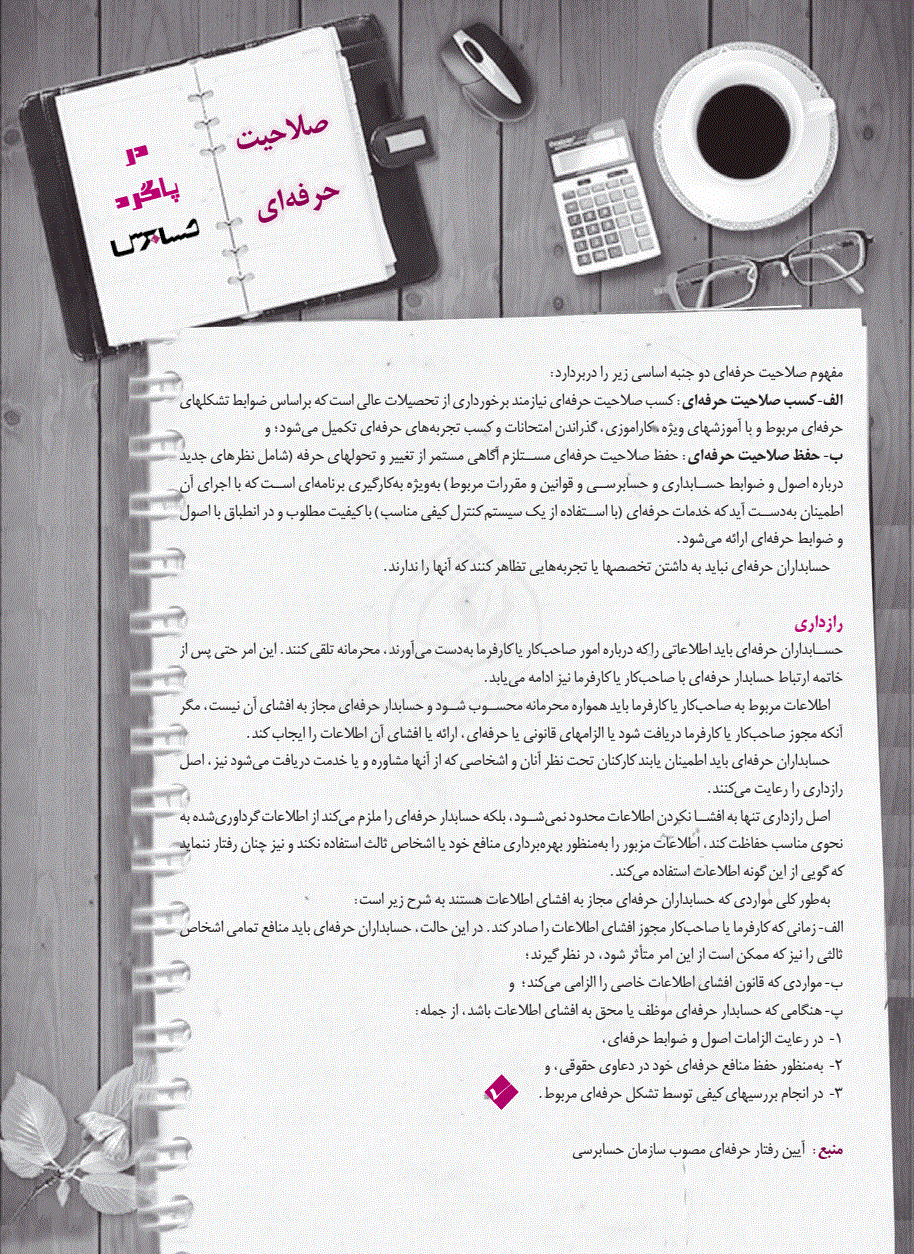 صلاحیت
حرفه‌ای
در
پاگرد
حسابرس
مفهوم صلاحیت حرفه‌ای دو جنبه اساسی زیر را دربردارد:
الف-کسب صلاحیت حرفه‌ای: کسب صلاحیت حرفه‌ای نیازمند برخورداری از تحصیلات عالی است که براساس ضوابط تشکلهای
حرفه‌ای مربوط و با آموزشهای ویژه ،کاراموزی، گذراندن امتحانات و کسب تجربه‌های حرفه‌ای تکمیل می‌شود؛ و
ب- حفظ صلاحیت حرفه‌ای: حفظ صلاحیت حرفه‌ای مستلزم آگاهی مستمر از تغییر و تحولهای حرفه (شامل نظرهای جدید
درباره اصول و ضوابط حسابداری و حسابرسی و قوانین و مقررات مربوط) به‌ویژه به‌کارگیری برنامه‌ای است که با اجرای آن
اطمینان به‌دست آید که خدمات حرفه‌ای (با استفاده از یک سیستم کنترل کیفی مناسب) با کیفیت مطلوب و در انطباق با اصول
و ضوابط حرفه‌ای ارائه می‌شود.
حسابداران حرفه‌ای نباید به داشتن تخصصها یا تجربه‌هایی تظاهر کنند که آنها را ندارند.
رازداری
حسابداران حرفه‌ای باید اطلاعاتی را که درباره امور صاحب‌کار یا کارفرما به‌دست می‌آورند، محرمانه تلقی کنند. این امر حتی پس از
خاتمه ارتباط حسابدار حرفه‌ای با صاحب‌کار یا کارفرما نیز ادامه می‌یابد.
اطلاعات مربوط به صاحب‌کار یا کارفرما باید همواره محرمانه محسوب شود و حسابدار حرفه‌ای مجاز به افشای آن نیست، مگر
آنکه مجوز صاحب‌کار یا کارفرما دریافت شود یا الزامهای قانونی یا حرفه‌ای، ارائه یا افشای آن اطلاعات را ایجاب کند.
حسابداران حرفه‌ای باید اطمینان یابند کارکنان تحت نظر آنان و اشخاصی که از آنها مشاوره و یا خدمت دریافت می‌شود نیز، اصل
رازداری را رعایت می‌کنند.
اصل رازداری تنها به افشا نکردن اطلاعات محدود نمی‌شود، بلکه حسابدار حرفه‌ای را ملزم می‌کند از اطلاعات گرداوری‌شده به
نحوی مناسب حفاظت کند، اطلاعات مزبور را به‌منظور بهره‌برداری منافع خود یا اشخاص ثالث استفاده نکند و نیز چنان رفتار ننماید
که گویی از این گونه اطلاعات استفاده می‌کند.
به‌طور کلی مواردی که حسابداران حرفه‌ای مجاز به افشای اطلاعات هستند به شرح زیر است:
الف- زمانی که کارفرما یا صاحب‌کار مجوز افشای اطلاعات را صادر کند. در این حالت، حسابداران حرفه‌ای باید منافع تمامی اشخاص
ثالثی را نیز که ممکن است از این امر متأثر شود، در نظر گیرند؛
ب- مواردی که قانون افشای اطلاعات خاصی را الزامی می‌کند؛ و
پ- هنگامی که حسابدار حرفه‌ای موظف یا محق به افشای اطلاعات باشد، از جمله:
۱- در رعایت الزامات اصول و ضوابط حرفه‌ای،
۲- به‌منظور حفظ منافع حرفه‌ای خود در دعاوی حقوقی، و
۳- در انجام بررسیهای کیفی توسط تشکل حرفه‌ای مربوط.
منبع: آیین رفتار حرفه‌ای مصوب سازمان حسابرسی